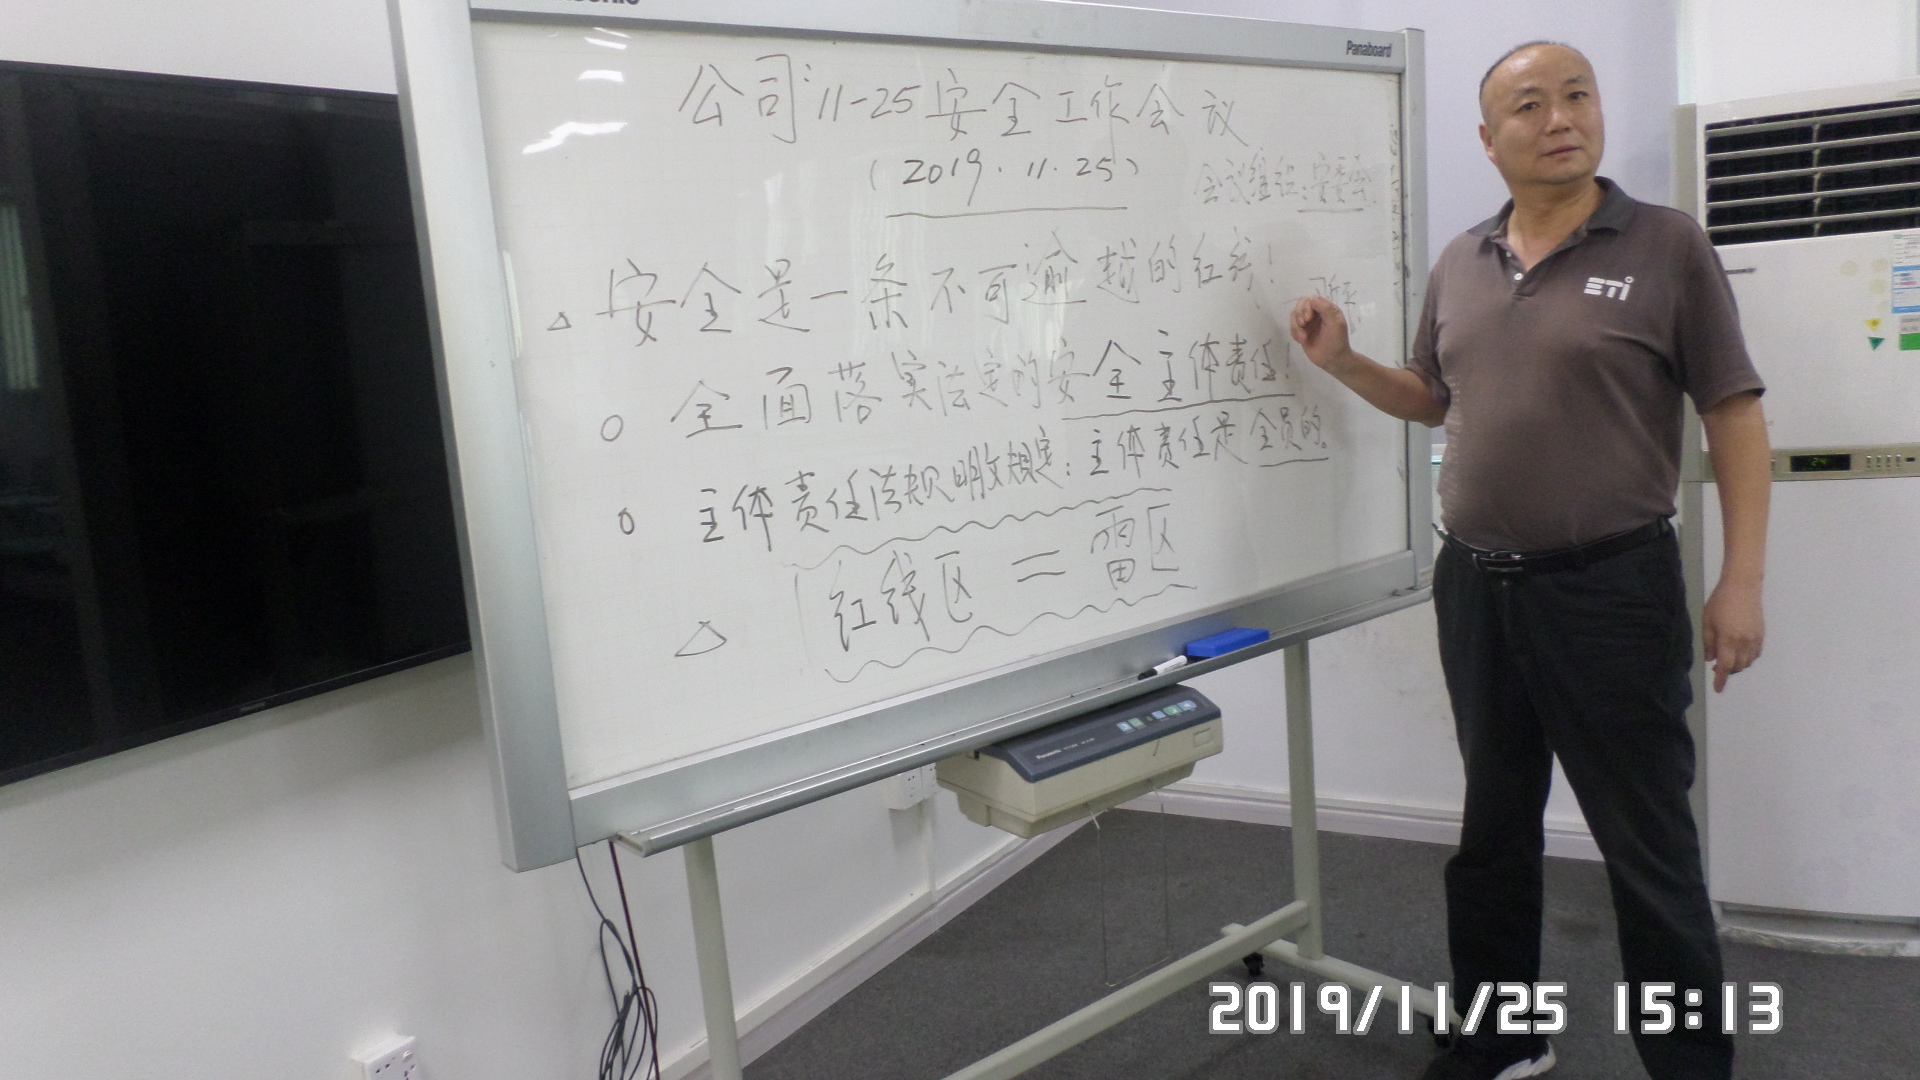 Panasonic
Panaboard
公司:11-25安全工作会议
(2019.11.25)
会议组织:安委会
△ 安全是一条不可逾越的红线!
○ 全面落实法定的安全主体责任!
○ 主体责任法规明文规定:主体责任是全员的。
△ 红线区=雷区
ETi
24
2019/11/25 15:13